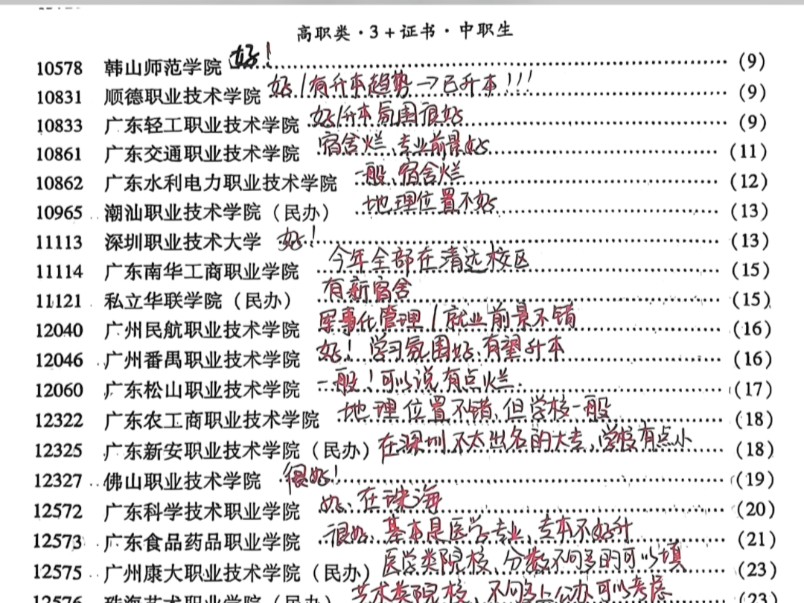 高职类·3+证书·中职生
10578 韩山师范学院 好! (9)
10831 顺德职业技术学院 好/有升本趋势→已升本!!! (9)
10833 广东轻工职业技术学院 好/升本氛围很好 (9)
10861 广东交通职业技术学院 宿舍烂、专业前景好 (11)
10862 广东水利电力职业技术学院 一般、宿舍烂 (12)
10965 潮汕职业技术学院(民办) 地理位置不好 (13)
11113 深圳职业技术大学 好! (13)
11114 广东南华工商职业学院 今年全部在清远校区 (15)
11121 私立华联学院(民办) 有新宿舍 (15)
12040 广州民航职业技术学院 军事化管理/就业前景不错 (16)
12046 广州番禺职业技术学院 好!学习氛围好,有望升本 (16)
12060 广东松山职业技术学院 一般!可以说有点烂. (17)
12322 广东农工商职业技术学院 地理位置不错,但学校一般 (18)
12325 广东新安职业技术学院(民办) 在深圳不太出名的大专,学校有点小 (18)
12327 佛山职业技术学院 很好! (19)
12572 广东科学技术职业学院 好、在珠海 (20)
12573 广东食品药品职业学院 很好、基本是医学专业,专本不好升 (21)
12575 广州康大职业技术学院(民办) 医学类院校,分数不够多的可以填 (23)
12576 珠海艺术职业学院(民办) 艺术类院校、不够上公办可以考虑 (23)